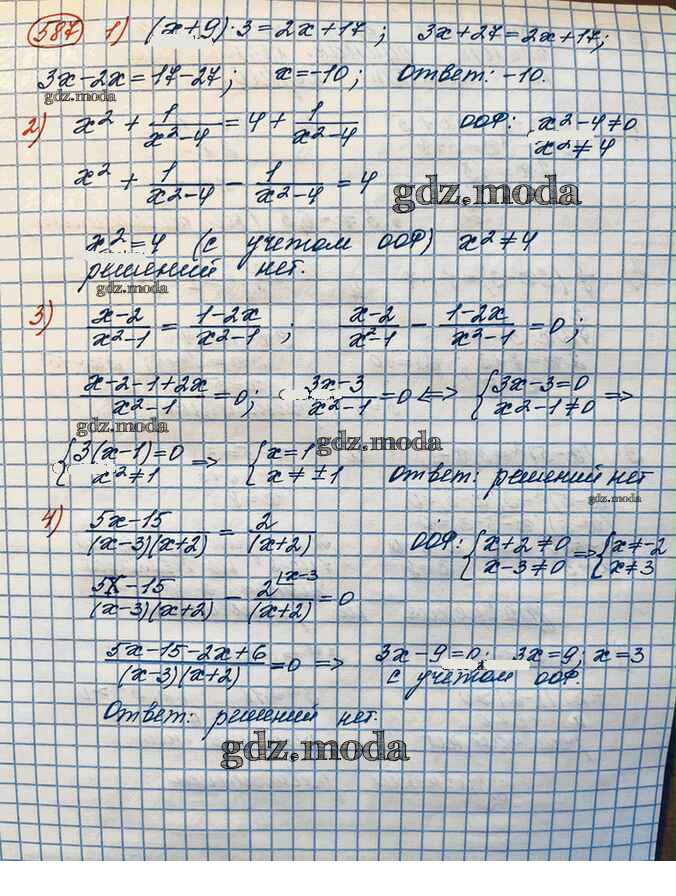 587 1) (x+9)·3=2x+17; 3x+27=2x+17;
3x-2x=17-27; x=-10; Ответ: -10.
gdz.moda
2) x² + 1/(x²-4) = 4 + 1/(x²-4) ООФ: x²-4≠0
x²≠4
x² + 1/(x²-4) - 1/(x²-4) = 4
gdz.moda
x²=4 (с учетом ООФ) x²≠4
решений нет.
gdz.moda
3) (x-2)/(x²-1) = (1-2x)/(x²-1); (x-2)/(x²-1) - (1-2x)/(x²-1) = 0;
gdz.moda
(x-2-1+2x)/(x²-1) = 0; (3x-3)/(x²-1) = 0 <=> {3x-3=0 x²-1≠0 =>
gdz.moda
gdz.moda
{3(x-1)=0 x²≠1 => {x=1 x≠±1 Ответ: решений нет
gdz.moda
4) (5x-15)/((x-3)(x+2)) = 2/(x+2) ООФ: {x+2≠0 x-3≠0 => {x≠-2 x≠3
(5x-15)/((x-3)(x+2)) - 2^(x-3)/(x+2) = 0
(5x-15-2x+6)/((x-3)(x+2)) = 0 => 3x-9=0; 3x=9; x=3
с учетом ООФ.
Ответ: решений нет.
gdz.moda